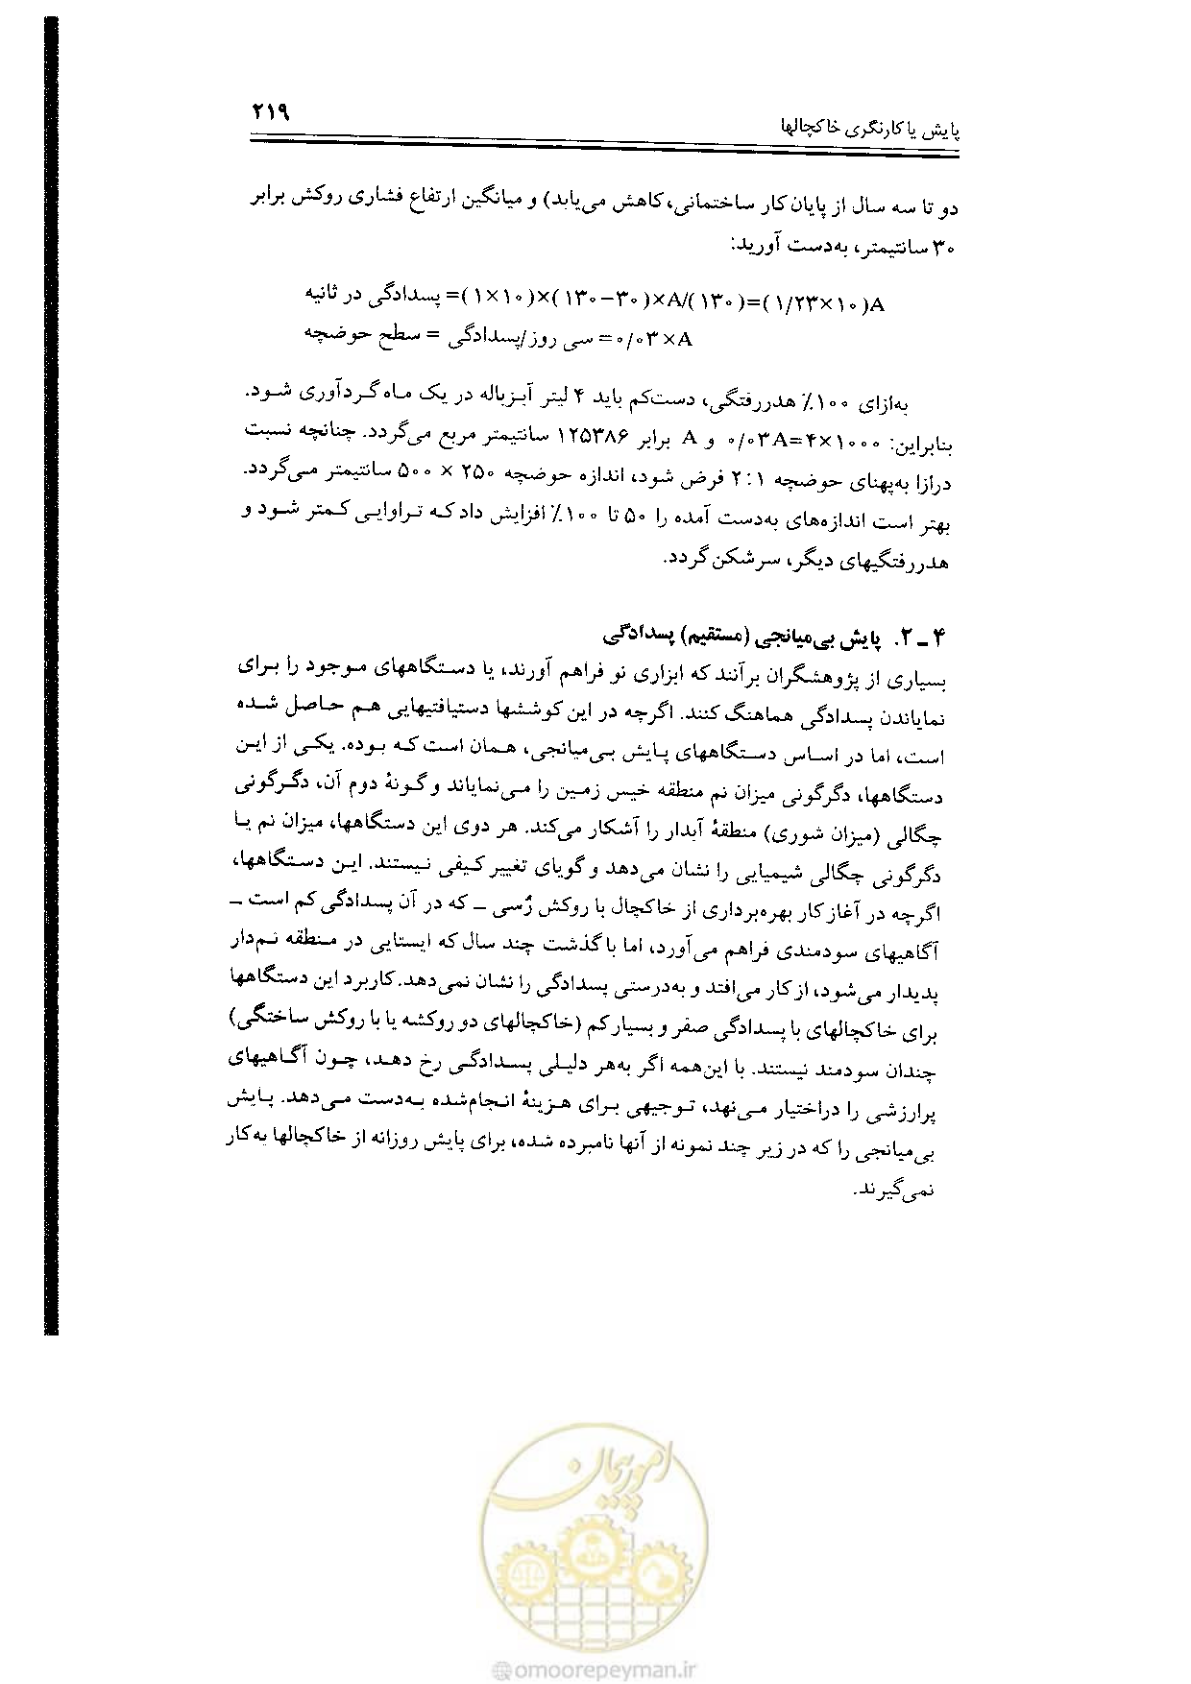 پایش یا کارنگری خاکچالها
۲۱۹
دو تا سه سال از پایان کار ساختمانی، کاهش می‌یابد) و میانگین ارتفاع فشاری روکش برابر
۳۰ سانتیمتر، به‌دست آورید:
پسدادگی در ثانیه =(۱×۱۰)×(۱۳۰−۳۰)×A/(۱۳۰)=(۱/۲۳×۱۰)A
سطح حوضچه = سی روز/پسدادگی =۰/۰۳×A
به‌ازای ۱۰۰٪ هدررفتگی، دست‌کم باید ۴ لیتر آبزباله در یک ماه گردآوری شود.
بنابراین: ۰/۰۳A=۴×۱۰۰۰ و A برابر ۱۲۵۳۸۶ سانتیمتر مربع می‌گردد. چنانچه نسبت
درازا به‌پهنای حوضچه ۲:۱ فرض شود، اندازه حوضچه ۲۵۰ × ۵۰۰ سانتیمتر می‌گردد.
بهتر است اندازه‌های به‌دست آمده را ۵۰ تا ۱۰۰٪ افزایش داد که تراوایی کمتر شود و
هدررفتگیهای دیگر، سرشکن گردد.
۴ ـ ۲. پایش بی‌میانجی (مستقیم) پسدادگی
بسیاری از پژوهشگران برآنند که ابزاری نو فراهم آورند، یا دستگاههای موجود را برای
نمایاندن پسدادگی هماهنگ کنند. اگرچه در این کوششها دستیافتیهایی هم حاصل شده
است، اما در اساس دستگاههای پایش بی‌میانجی، همان است که بوده. یکی از این
دستگاهها، دگرگونی میزان نم منطقه خیس زمین را می‌نمایاند و گونۀ دوم آن، دگرگونی
چگالی (میزان شوری) منطقۀ آبدار را آشکار می‌کند. هر دوی این دستگاهها، میزان نم یا
دگرگونی چگالی شیمیایی را نشان می‌دهد و گویای تغییر کیفی نیستند. این دستگاهها،
اگرچه در آغاز کار بهره‌برداری از خاکچال با روکش رُسی ـ که در آن پسدادگی کم است ـ
آگاهیهای سودمندی فراهم می‌آورد، اما با گذشت چند سال که ایستایی در منطقه نم‌دار
پدیدار می‌شود، از کار می‌افتد و به‌درستی پسدادگی را نشان نمی‌دهد. کاربرد این دستگاهها
برای خاکچالهای با پسدادگی صفر و بسیار کم (خاکچالهای دو روکشه یا با روکش ساختگی)
چندان سودمند نیستند. با این‌همه اگر به‌هر دلیلی پسدادگی رخ دهد، چون آگاهیهای
پرارزشی را دراختیار می‌نهد، توجیهی برای هزینۀ انجام‌شده به‌دست می‌دهد. پایش
بی‌میانجی را که در زیر چند نمونه از آنها نامبرده شده، برای پایش روزانه از خاکچالها به‌کار
نمی‌گیرند.
امور پیمان
@omoorepeyman.ir